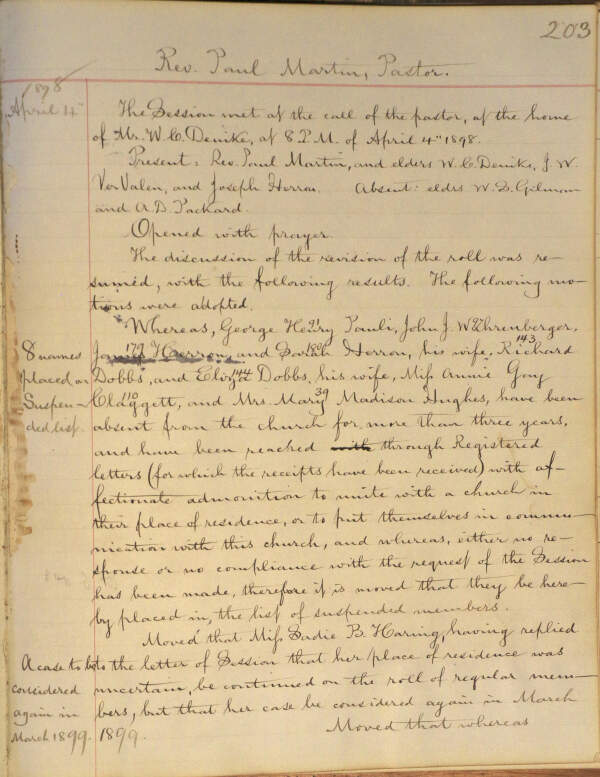 203
Rev. Paul Martin, Pastor.
1898
April 4th
The Session met at the call of the pastor, at the home
of Mr. W. C. Denike, at 8 P.M. of April 4th 1898.
Present: Rev. Paul Martin, and elders W. C. Denike, J. W.
VerValen, and Joseph Herron. Absent: elders W. D. Gilman
and A. D. Packard.
Opened with prayer.
The discussion of the revision of the roll was re-
sumed, with the following results. The following mo-
tions were adopted.
Whereas, George Henry Pauli, John J. W. Ehrenberger,
91
8 names
placed on
Suspen-
ded list.
179 180 143
and Sarah Herron, his wife, Richard
144
Dobbs, and Eliza Dobbs, his wife, Miss Annie Gay
110 39
Claggett, and Mrs. Mary Madison Hughes, have been
absent from the church for more than three years,
and have been reached with through Registered
letters (for which the receipts have been received) with af-
fectionate admonition to unite with a church in
their place of residence, or to put themselves in commu-
nication with this church, and whereas, either no re-
sponse or no compliance with the request of the Session
has been made, therefore it is moved that they be here-
by placed in the list of suspended members.
Moved that Miss Sadie B. Haring, having replied
A case to be
considered
again in
March 1899.
to the letter of Session that her place of residence was
uncertain, be continued on the roll of regular mem-
bers, but that her case be considered again in March
1899.
Moved that whereas